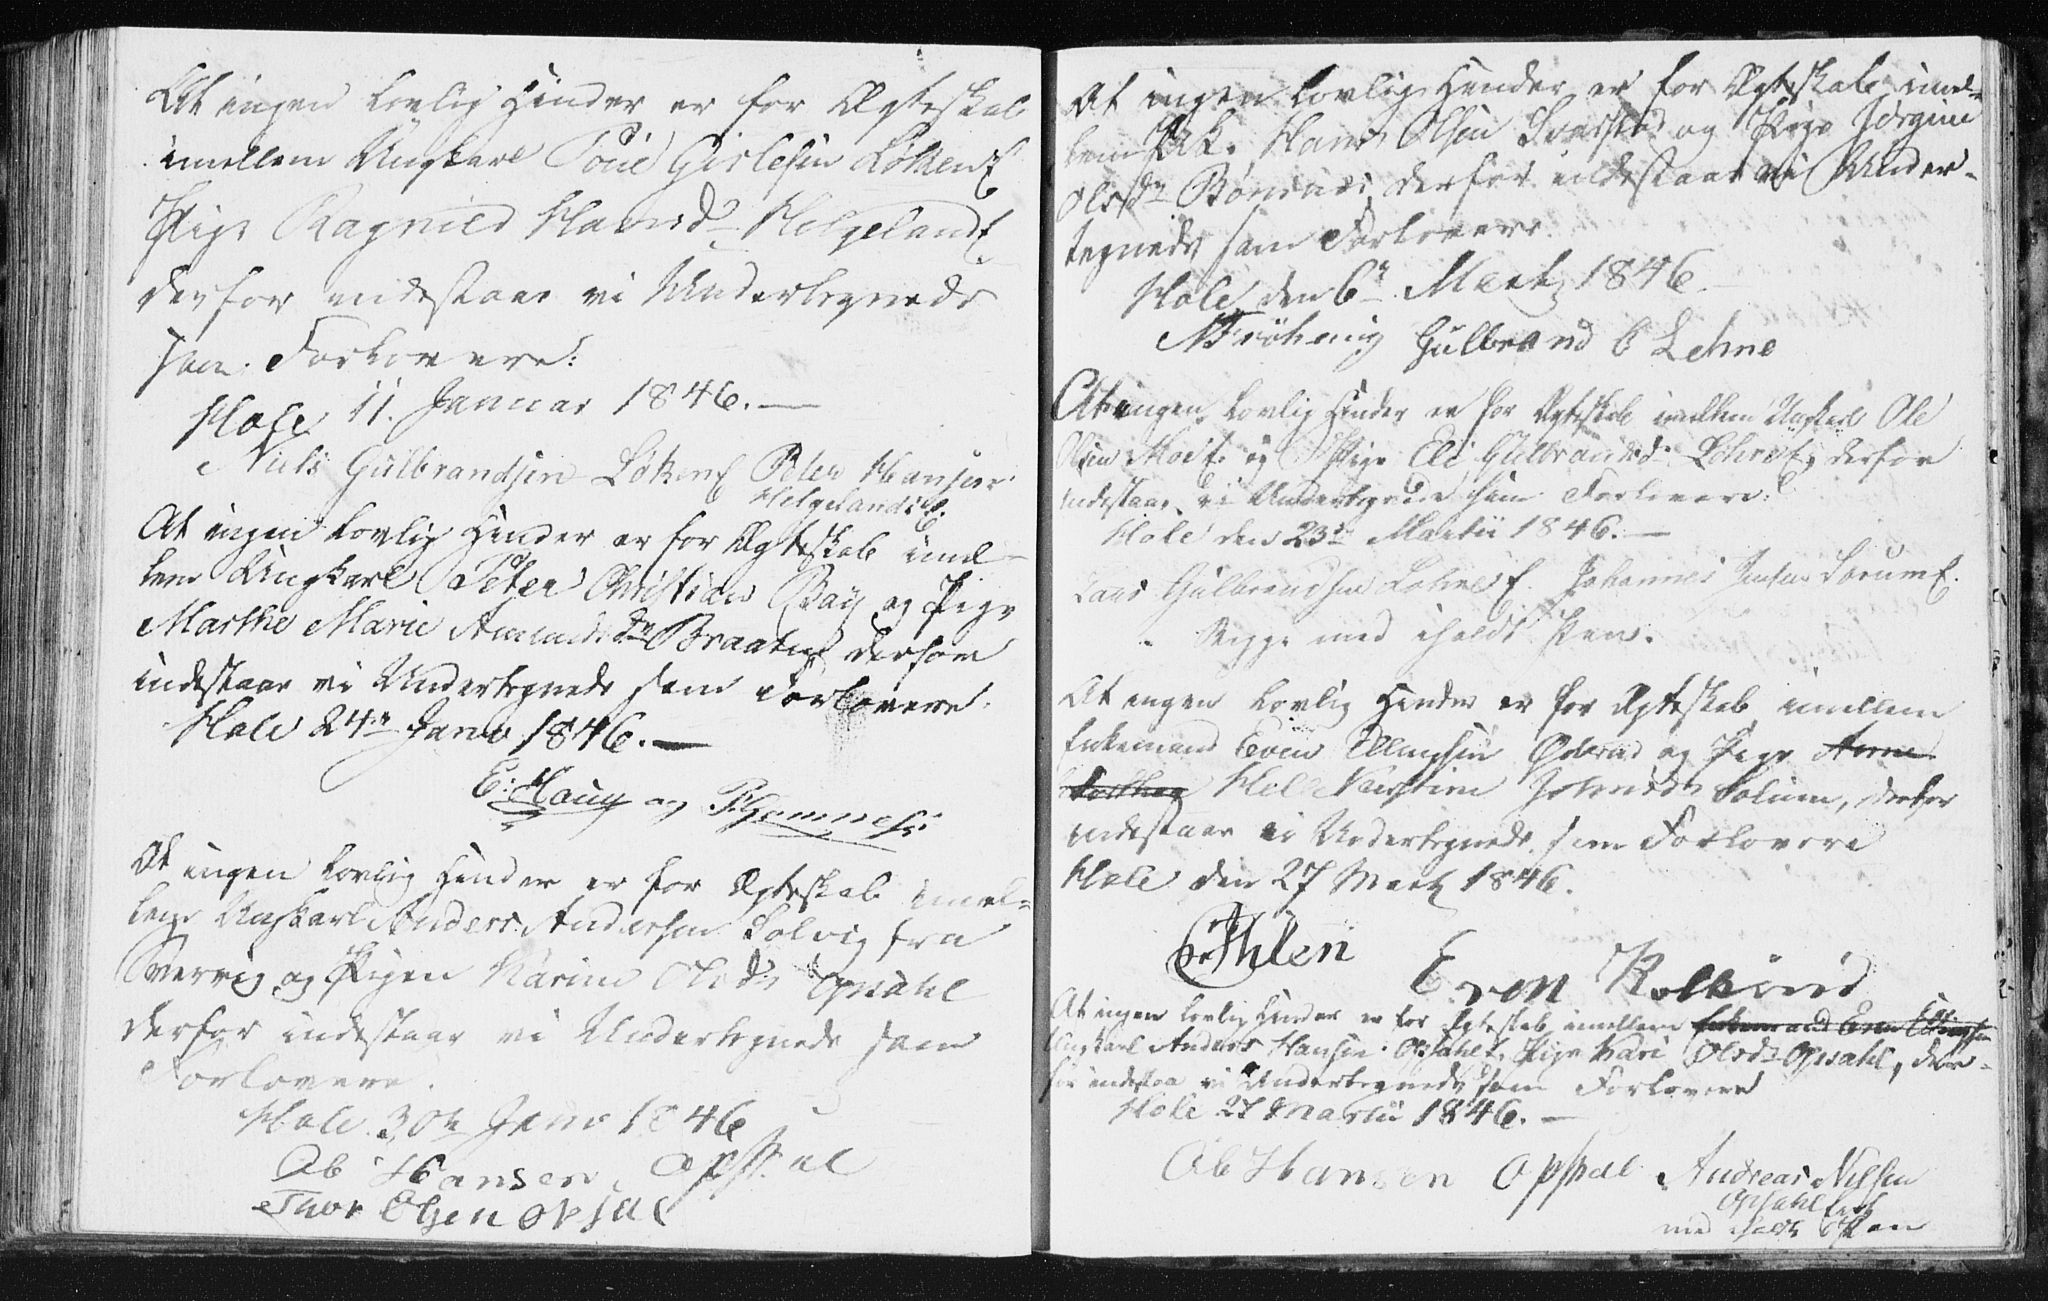 At ingen lovlig Hinder er for Ægteskab
imellem Ungkarl Toue Gislesen Løken E
Pige Ragnild Hansd Helgeland E
derfor indestaae vi Undertegnede
som Forlovere:
Hole 11. Januar 1846. —
Niels Gulbrandsen Løken E Peter Hansen
Helgelands E.
At ingen lovlig Hinder er for Ægteskab imel-
lem Ungkarl Peter Christian Bay og Pige
Marthe Marie Amundsdr Braaten derfor
indestaae vi Undertegnede som Forlovere.
Hole 24de Janr 1846. —
E: Haug og
At ingen lovlig Hinder er for Ægteskab imel-
lem Ungkarl Anders Andersen Solvig fra
og Pigen Karine Olsdr Opsahl
derfor indestaar vi Undertegnede som
Forlovere.
Hole 30te Janr 1846
Ob Hansen Opsal
Thor Olsen Opsal
At ingen lovlig Hinder er for Ægteskab imel-
lem Hans Olsen og Pige Jørgine
Olsdr Bønsnæs derfor indestaae vi Under-
tegnede som Forlovere.
Hole den 6te Martz 1846. —
Gulbrand O Lehne
At ingen lovlig Hinder er for Ægteskab imellem Ungkarl Ole
Olsen Moe E. og Pige Eli Gulbrandsd Lehne E, derfor
indestaae vi Undertegnede som Forlovere:
Hole den 23de Martii 1846. —
Lars Gulbrandsen Lehnes E. Johannes Jensen Sørum E.
Begge med iholdt Pen.
At ingen lovlig Hinder er for Ægteskab imellem
Enkemand Even Ellingsen og Pige Anne
Helle Kirstine Johnsdr Solum, derfor
indestaae vi Undertegnede som Forlovere
Hole den 27 Martz 1846.
Ihlen Even
At ingen lovlig Hinder er for Ægteskab imellem Enkemand Even Ellingsen
Ungkarl Anders Hansen Opsahl E, Pige Kari Olsdr Opsahl, der-
for indestaa vi Undertegnede som Forlovere
Hole 27 Martii 1846. —
Ob Hansen Opsal Andreas Nilsen
Opsahl
med iholdt Pen